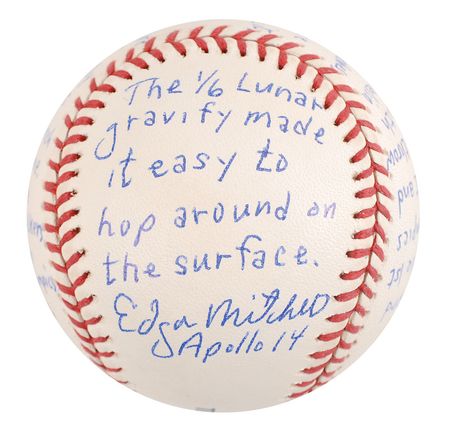 The 1/6 Lunar
gravity made
it easy to
hop around on
the surface.
Edgar Mitchell
Apollo 14